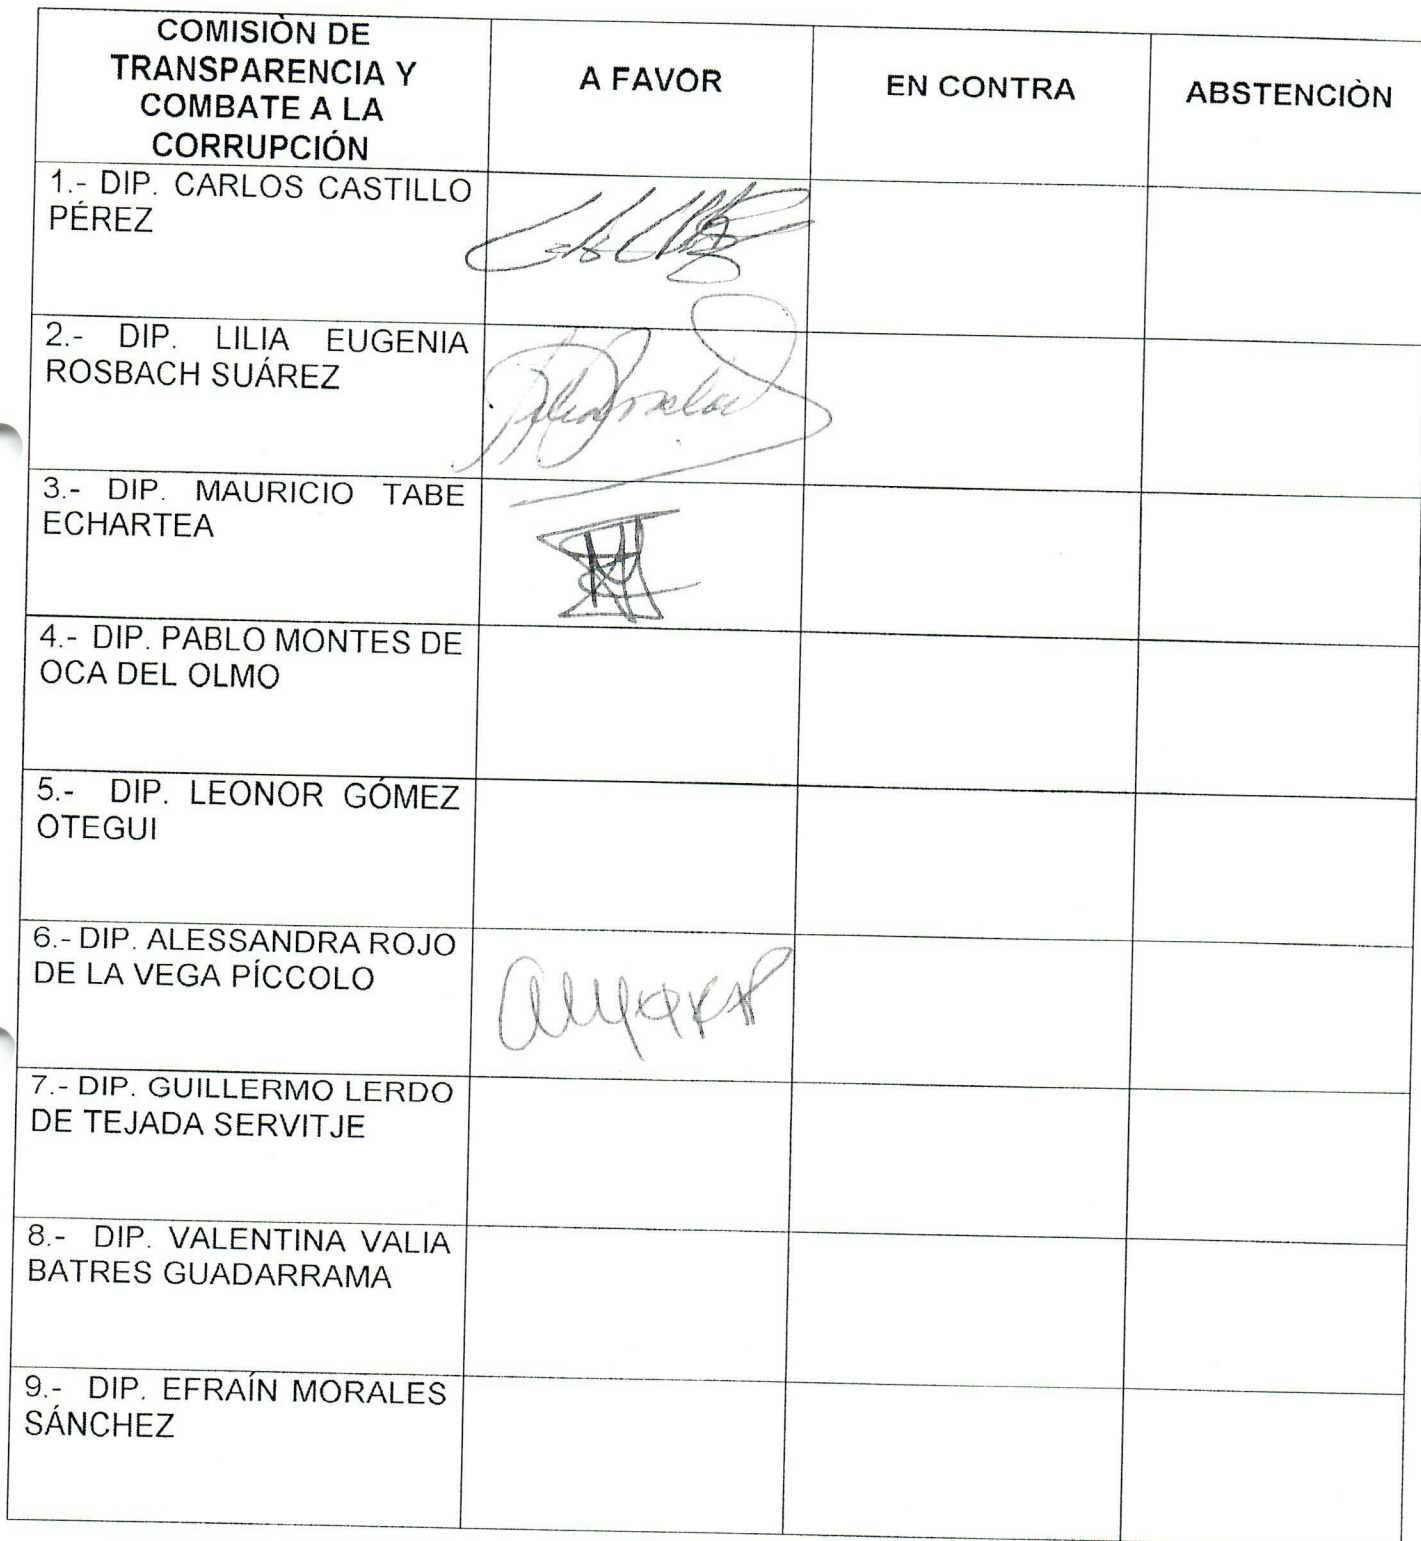 COMISIÒN DE
TRANSPARENCIA Y
COMBATE A LA
CORRUPCIÓN
A FAVOR
EN CONTRA
ABSTENCIÒN
1.- DIP. CARLOS CASTILLO
PÉREZ
2.- DIP. LILIA EUGENIA
ROSBACH SUÁREZ
3.- DIP. MAURICIO TABE
ECHARTEA
4.- DIP. PABLO MONTES DE
OCA DEL OLMO
5.- DIP. LEONOR GÓMEZ
OTEGUI
6.- DIP. ALESSANDRA ROJO
DE LA VEGA PÍCCOLO
7.- DIP. GUILLERMO LERDO
DE TEJADA SERVITJE
8.- DIP. VALENTINA VALIA
BATRES GUADARRAMA
9.- DIP. EFRAÍN MORALES
SÁNCHEZ